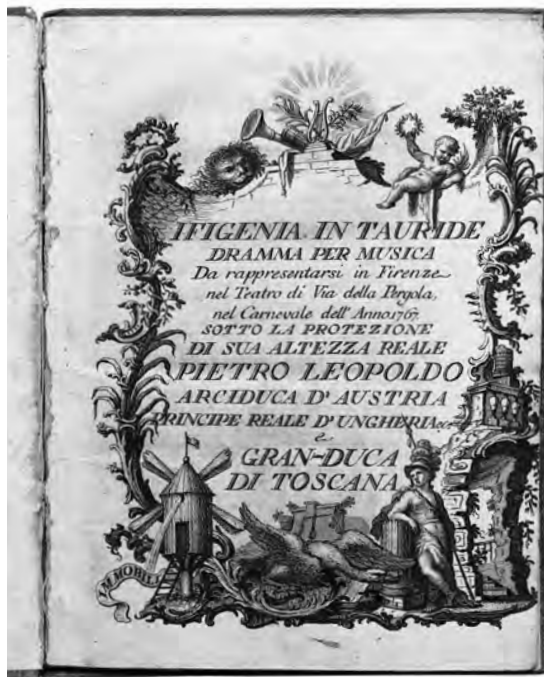 IFIGENIA IN TAURIDE
DRAMMA PER MUSICA
Da rappresentarsi in Firenze
nel Teatro di Via della Pergola,
nel Carnevale dell' Anno 1767.
SOTTO LA PROTEZIONE
DI SUA ALTEZZA REALE
PIETRO LEOPOLDO
ARCIDUCA D' AUSTRIA
PRINCIPE REALE D' UNGHERIA &c.
e
GRAN-DUCA
DI TOSCANA
IMMOBILI